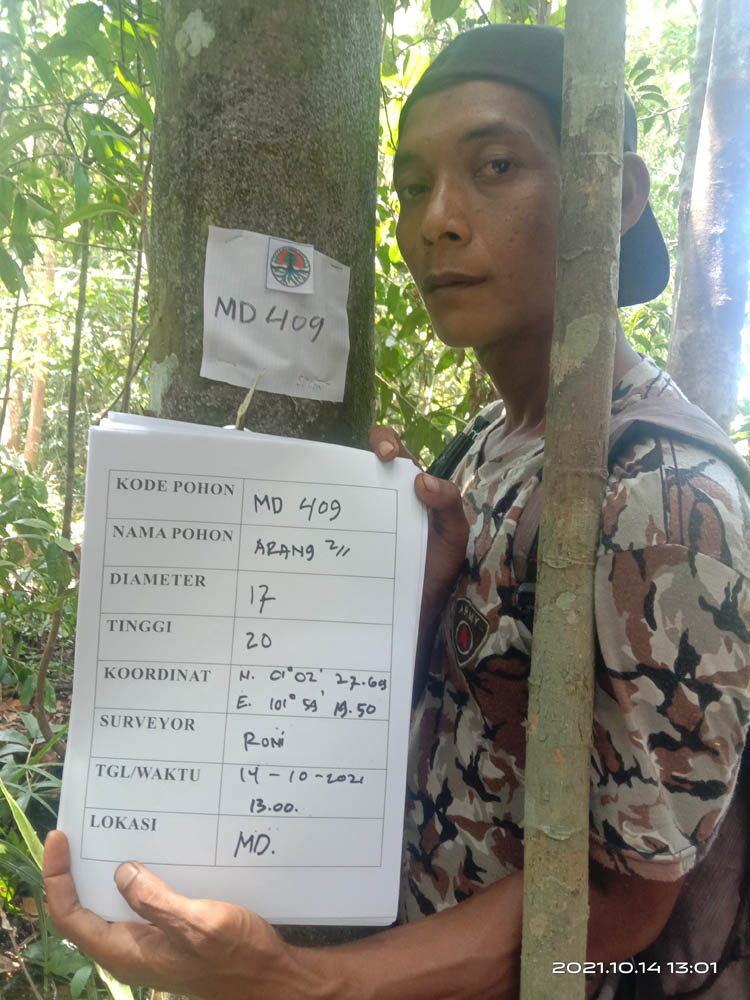 MD 409
KODE POHON MD 409
NAMA POHON ARANG 2//
DIAMETER 17
TINGGI 20
KOORDINAT N. 01° 02' 27.69
E. 101° 59' 19.50
SURVEYOR RONI
TGL/WAKTU 14-10-2021
13.00.
LOKASI MD.
2021.10.14 13:01